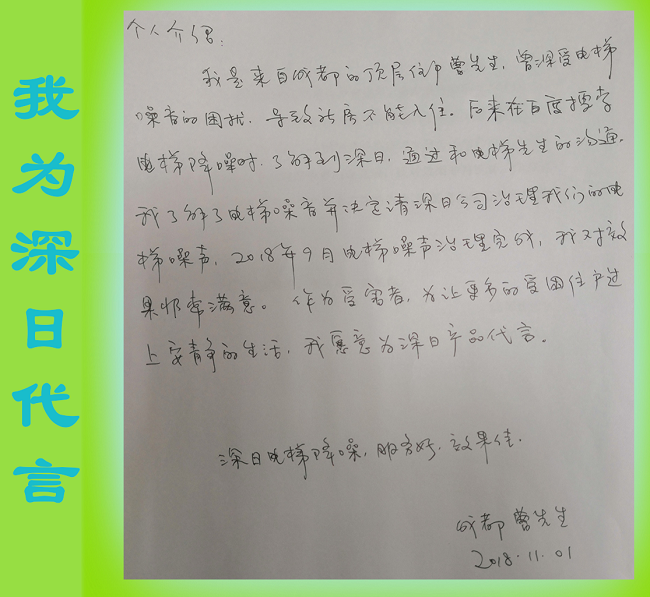 我为深日代言
个人介绍:
我是来自成都的顶层住户曾先生,曾深受电梯
噪音的困扰,导致新房不能入住。后来在百度搜索
电梯降噪时,了解到深日,通过和电梯先生的沟通,
我了解了电梯噪音并决定请深日公司治理我们的电
梯噪声,2018年9月电梯噪声治理完成,我对效
果非常满意。作为受害者,为让更多的受困住户过
上安静的生活,我愿意为深日产品代言。
深日电梯降噪,服务好,效果佳.
成都 曾先生
2018.11.01